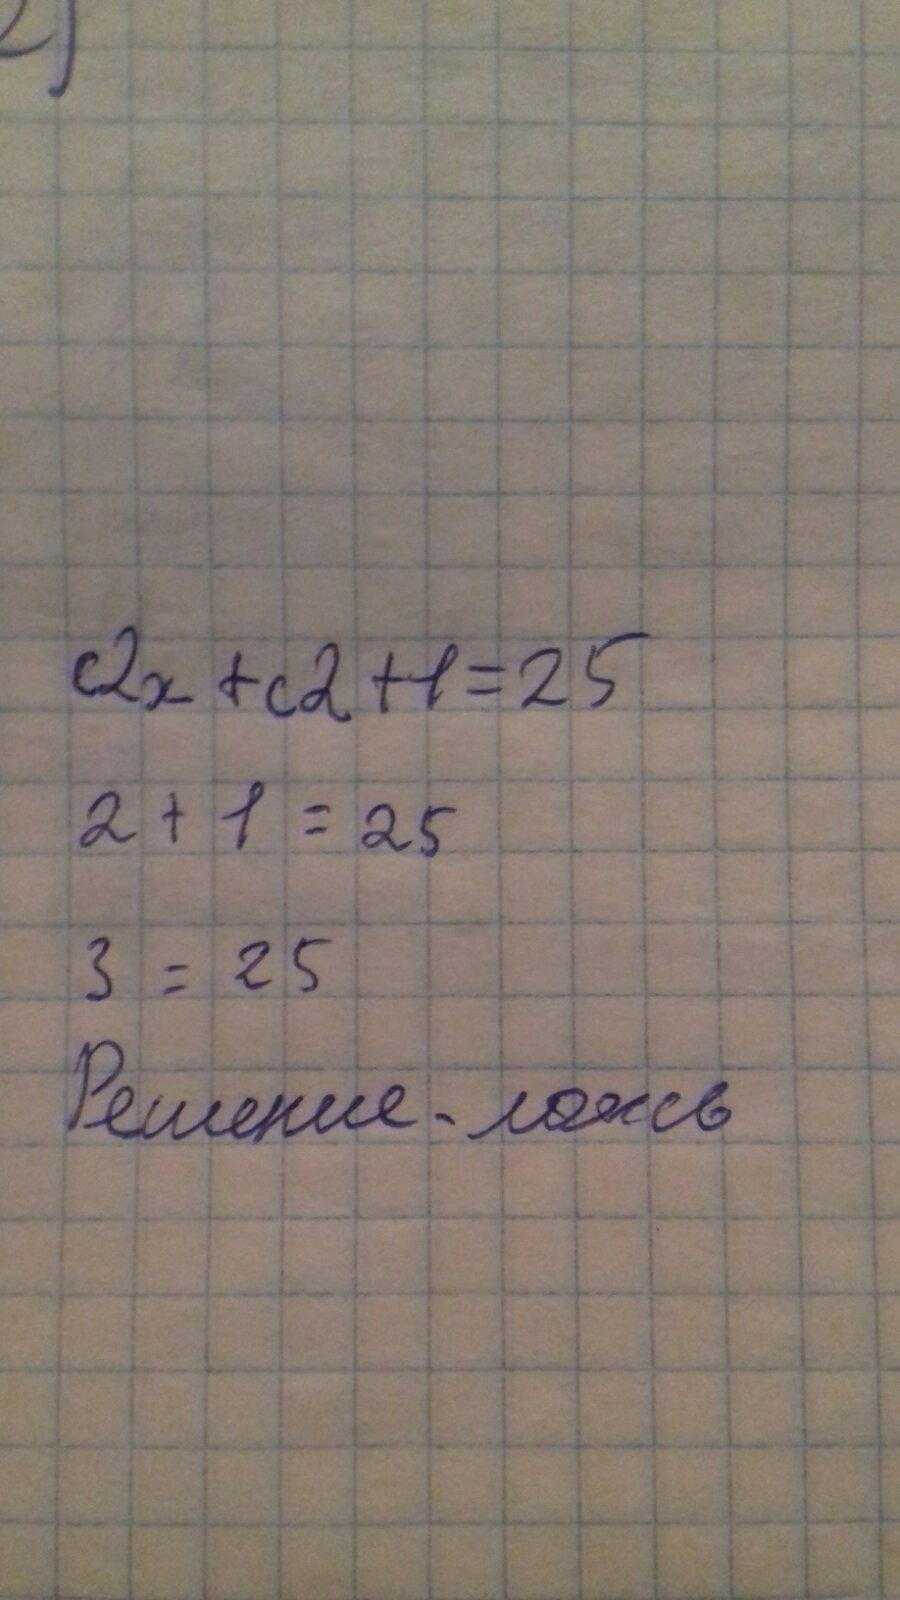 2)
c2x + c2 + 1 = 25
2 + 1 = 25
3 = 25
Решение - ложь